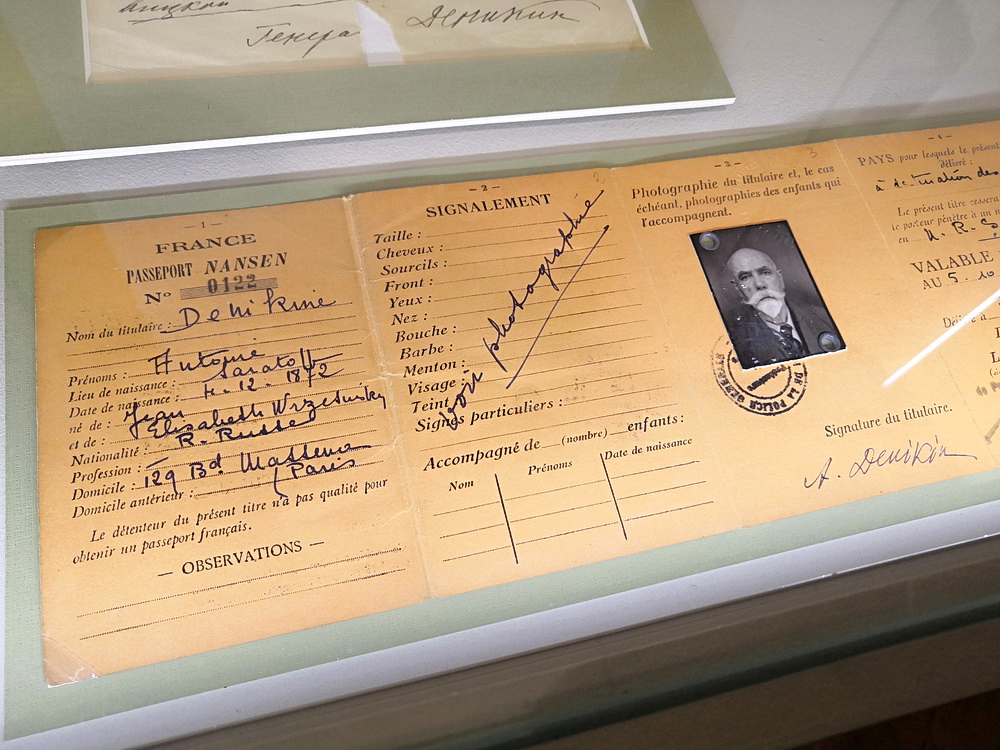 Генера Деникин
- 1 -
FRANCE
PASSEPORT NANSEN
No 0122
Nom du titulaire : Denikine
Prénoms : Antoine
Lieu de naissance : Saratoff
Date de naissance : 4-12-1872
né de : Jean
et de : Elisabeth Wrzesinsky
Nationalité : R. Russe
Profession : —
Domicile : 129 Bd Massena
Domicile antérieur : (Paris
Le détenteur du présent titre n'a pas qualité pour
obtenir un passeport français.
— OBSERVATIONS —
- 2 -
SIGNALEMENT
Taille :
Cheveux :
Sourcils :
Front :
Yeux :
Nez :
Bouche :
Barbe :
Menton :
Visage :
Teint :
Signes particuliers :
voir photographie
Accompagné de (nombre) enfants :
Nom Prénoms Date de naissance
- 3 -
3
Photographie du titulaire et, le cas
échéant, photographies des enfants qui
l'accompagnent.
DE LA POLICE
Signature du titulaire.
A. Деникин
- 4 -
PAYS pour lesquels le présent
délivré :
à destination des
Le présent titre cessera
le porteur pénètre à un
en U. R. S
VALABLE
AU 5. 10
Délivré à